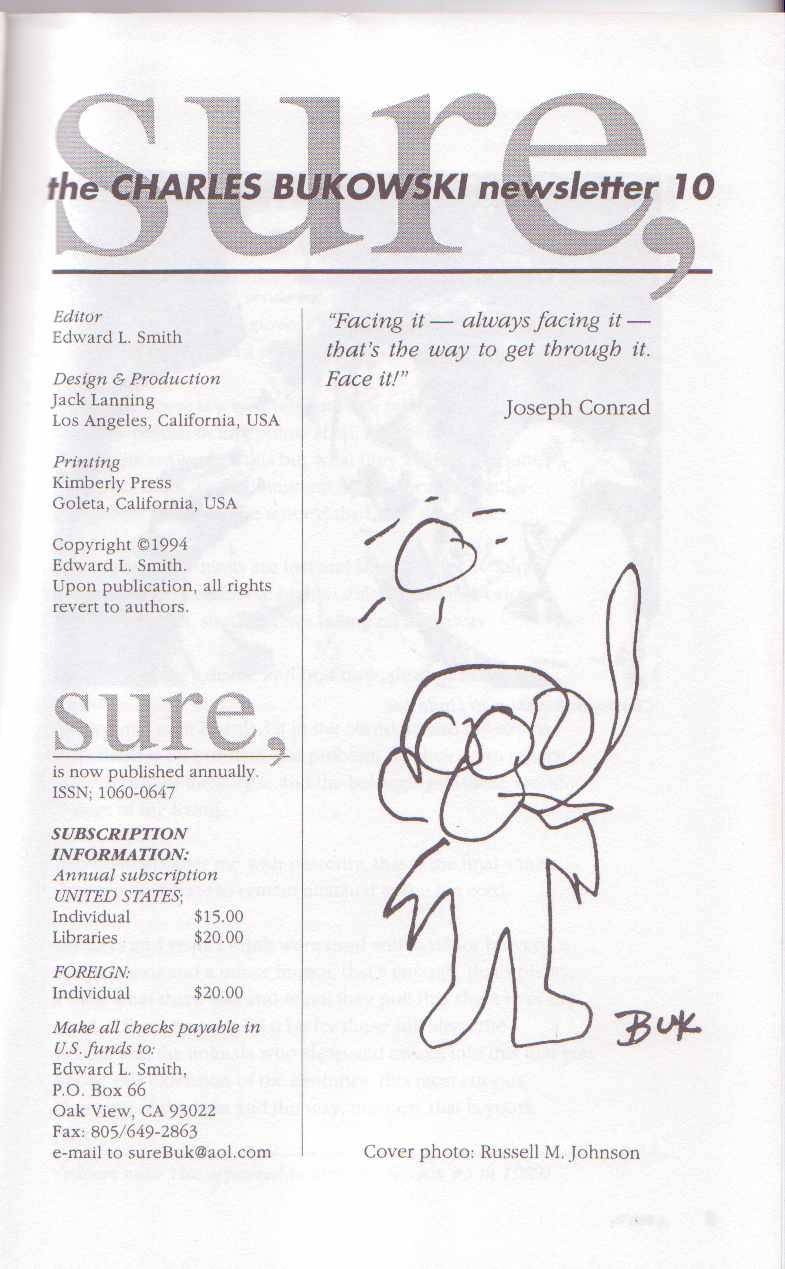 sure,
the CHARLES BUKOWSKI newsletter 10
Editor
Edward L. Smith
Design & Production
Jack Lanning
Los Angeles, California, USA
Printing
Kimberly Press
Goleta, California, USA
Copyright ©1994
Edward L. Smith.
Upon publication, all rights
revert to authors.
sure,
is now published annually.
ISSN; 1060-0647
SUBSCRIPTION
INFORMATION:
Annual subscription
UNITED STATES;
Individual $15.00
Libraries $20.00
FOREIGN:
Individual $20.00
Make all checks payable in
U.S. funds to:
Edward L. Smith,
P.O. Box 66
Oak View, CA 93022
Fax: 805/649-2863
e-mail to sureBuk@aol.com
“Facing it — always facing it —
that's the way to get through it.
Face it!”
Joseph Conrad
BUK
Cover photo: Russell M. Johnson